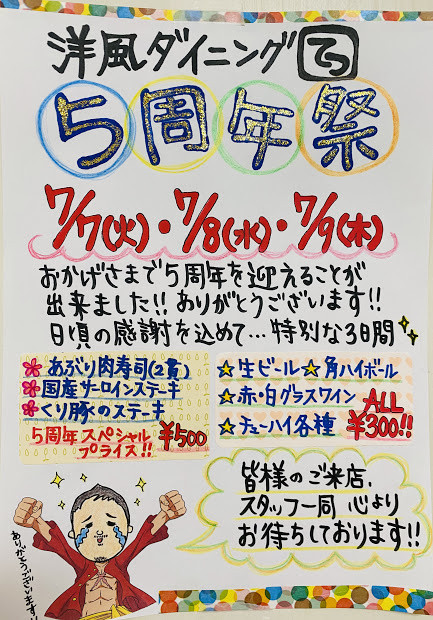 洋風ダイニングてつ
5周年祭
7/7(火)・7/8(水)・7/9(木)
おかげさまで5周年を迎えることが
出来ました!! ありがとうございます!!
日頃の感謝を込めて…特別な3日間
あぶり肉寿司(2貫)
国産サーロインステーキ
くり豚のステーキ
5周年スペシャル
プライス!! ¥500
☆生ビール☆角ハイボール
☆赤・白グラスワイン
☆チューハイ各種
ALL
¥300!!
皆様のご来店、
スタッフ一同 心より
お待ちしております!!
ありがとうございます!!